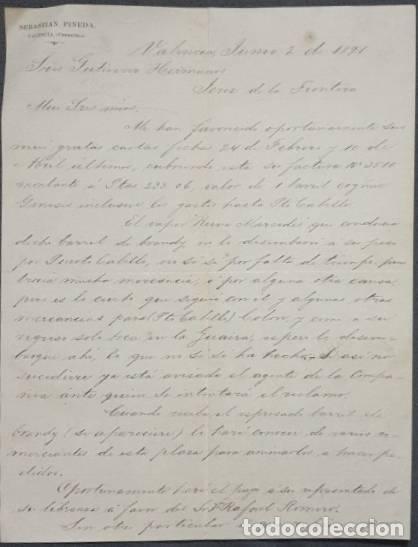 SEBASTIAN PINEDA.
VALENCIA,
Valencia, Junio 2 de 1891
Sres Gutierrez Hermanos
Jerez de la Frontera
Muy Sres mios,
Me han favorecido oportunamente sus
muy gratas cartas fechas 24 de Febrero y 10 de
Abril último, cubriendo esta su factura Nº
montante á Ptas 233.06, valor de 1 barril cognac
Genesis inclusive los gastos hasta Pto Cabello
El vapor Reina Mercedes que condujo
dicho barril de brandy no lo desembarcó a su paso
por Puerto Cabello, no sé si por falta de tiempo, pues
traia mucha mercancia, ó por alguna otra causa,
pues es lo cierto que siguió con él y algunas otras
mercancias para (Pto Cabello) Colon, y como a su
regreso solo toca en la Guaira, espero lo desem-
barque ahí, lo que no sé se ha hecho. Si así no
sucediere ya está avisado el agente de la Compa-
ñia ante quien se intentará el reclamo.
Cuando reciba el espresado barril de
brandy (si apareciere) lo haré conocer de varios co-
merciantes de esta plaza para animarlos a hacer pe-
didos.
Oportunamente haré el pago á su representado de
su libranza á favor del Sor Dn Rafael Romero.
Sin otro particular
todocoleccion.net